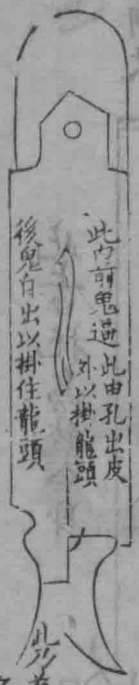 此内前鬼過此由孔出皮
外以掛龍頭
後鬼自出以掛住龍頭
此